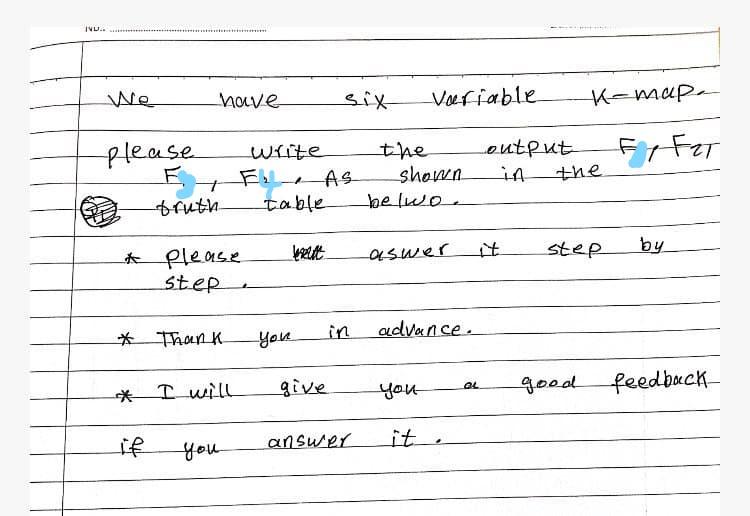 NO..
We have six variable K-map.
please write the output F, F2,
F, F4. As shown in the
truth table belwo.
* please aswer it step by
step.
* Thank you in advance.
* I will give you a good feedback
if you answer it.